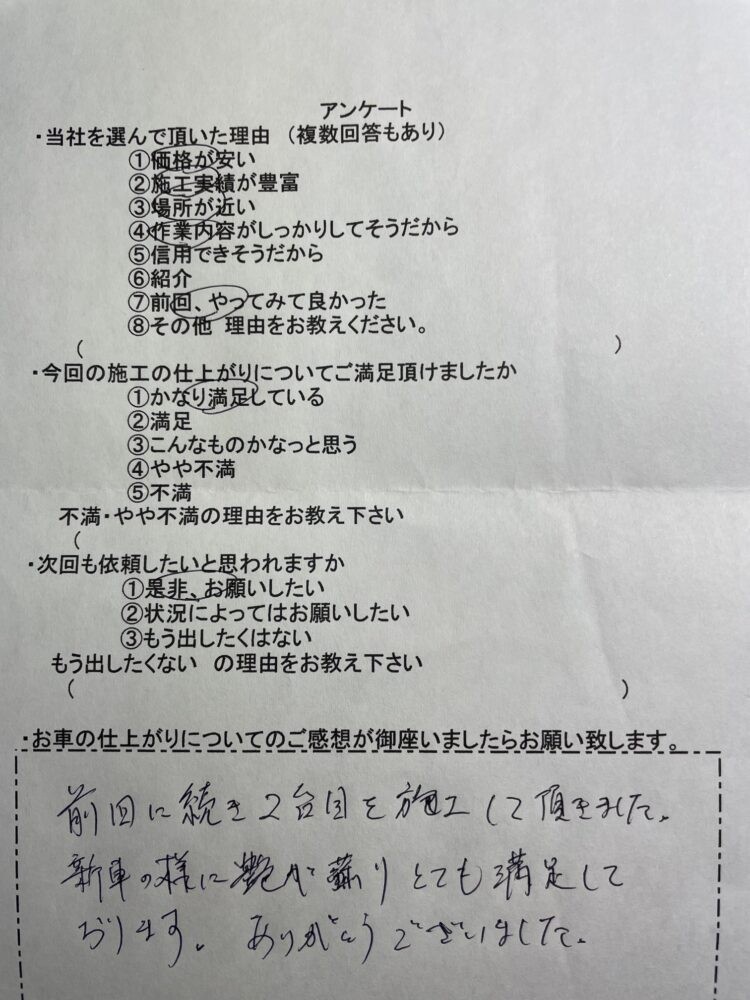 アンケート
・当社を選んで頂いた理由　（複数回答もあり）
①価格が安い
②施工実績が豊富
③場所が近い
④作業内容がしっかりしてそうだから
⑤信用できそうだから
⑥紹介
⑦前回、やってみて良かった
⑧その他　理由をお教えください。
（　　　　　　　　　　　　　　　　　　　　　　）
・今回の施工の仕上がりについてご満足頂けましたか
①かなり満足している
②満足
③こんなものかなっと思う
④やや不満
⑤不満
不満・やや不満の理由をお教え下さい
（
・次回も依頼したいと思われますか
①是非、お願いしたい
②状況によってはお願いしたい
③もう出したくはない
もう出したくない　の理由をお教え下さい
（　　　　　　　　　　　　　　　　　　　　　　）
・お車の仕上がりについてのご感想が御座いましたらお願い致します。
前回に続き2台目を施工して頂きました。
新車の様に艶が蘇りとても満足して
おります。ありがとうございました。